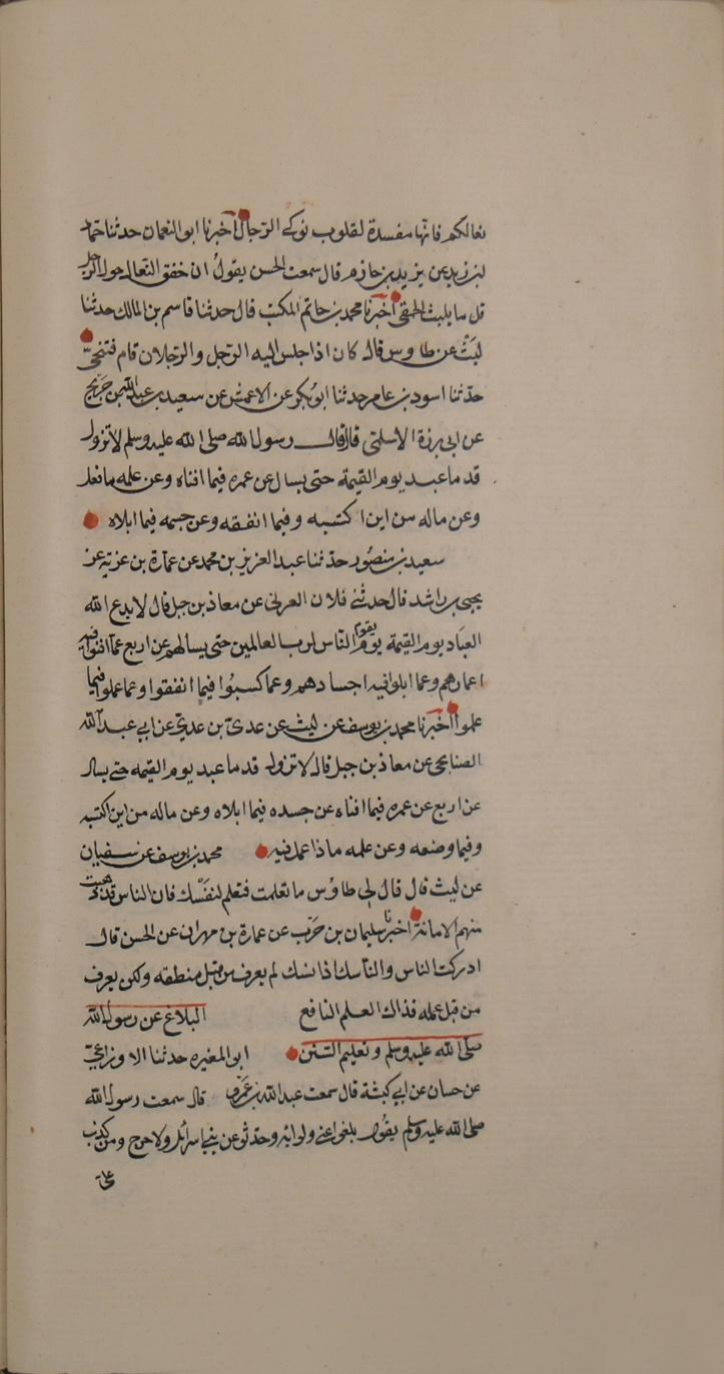 نعالكم فانها مفسدة لقلوب نوكى الرجال اخبرنا ابو النعمان حدثنا حماد
بن زيد عن يزيد بن حازم قال سمعت الحسن يقول ان خفق النعال حول الرجال
قل ما يلبث الحمقى اخبرنا محمد بن حاتم المكتب قال حدثنا قاسم بن المالك حدثنا
ليث عن طاوس قال كان اذا جلس اليه الرجل والرجلان قام فتنحى
حدثنا اسود بن عامر حدثنا ابو بكر عن الاعمش عن سعيد بن عبد الله بن جريج
عن ابى برزة الاسلمى قال قال رسول الله صلى الله عليه وسلم لا تزول
قدما عبد يوم القيمة حتى يسال عن عمره فيما افناه وعن علمه ما فعل
وعن ماله من اين اكتسبه وفيما انفقه وعن جسمه فيما ابلاه
سعيد بن منصور حدثنا عبد العزيز بن محمد عن عمارة بن عزية عن
يحيى بن راشد قال حدثنى فلان العرنى عن معاذ بن جبل قال لا يدع الله
العباد يوم القيمة يوم يقوم الناس لرب العالمين حتى يسالهم عن اربع عما افنوا فيه
اعمارهم وعما ابلوا فيه اجسادهم وعما كسبوا فيما انفقوا وعما عملوا فيما
علموا اخبرنا محمد بن يوسف عن ليث عن عدى بن عدى عن ابى عبد الله
الصنابحى عن معاذ بن جبل قال لا تزول قدما عبد يوم القيمة حتى يسال
عن اربع عن عمره فيما افناه عن جسده فيما ابلاه وعن ماله من اين اكتسبه
وفيما وضعه وعن علمه ماذا عمل فيه محمد بن يوسف عن سفيان
عن ليث قال قال لى طاوس ما تعلمت فتعلم لنفسك فان الناس قد ذهبت
منهم الامانة اخبرنا سليمان بن حرب عن عمارة بن مهران عن الحسن قال
ادركت الناس والناسك اذا نسك لم يعرف من قبل منطقه ولكن يعرف
من قبل عمله فذاك العلم النافع البلاغ عن رسول الله
صلى الله عليه وسلم وتعليم السنن ابو المغيره حدثنا الاوزاعى
عن حسان عن ابى كبشة قال سمعت عبد الله بن عمرو قال سمعت رسول الله
صلى الله عليه وسلم يقول بلغوا عنى ولو اية وحدثوا عن بنى اسرائل ولا حرج ومن كذب
على